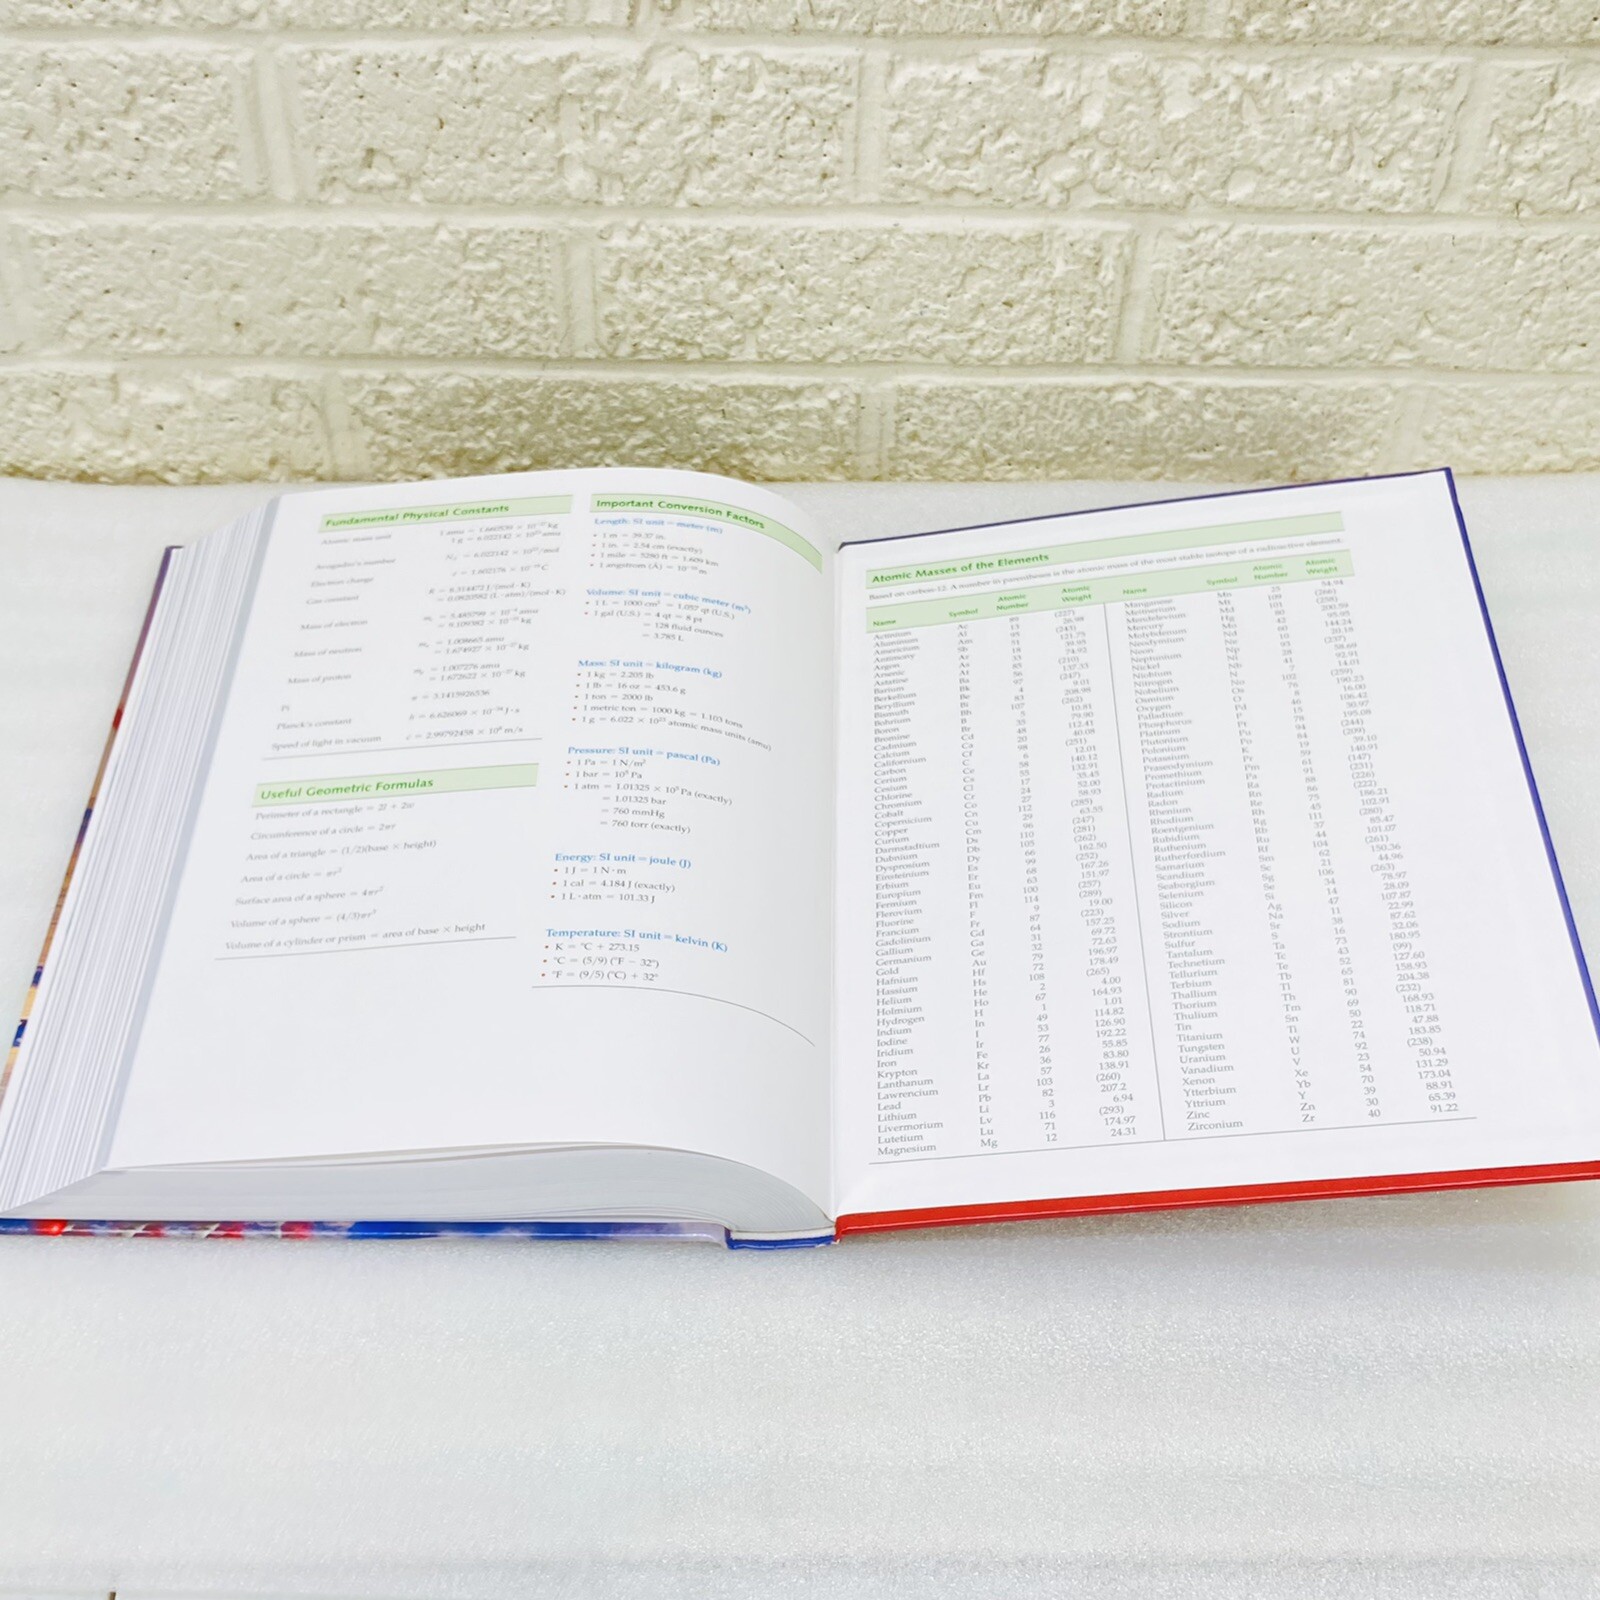 Fundamental Physical Constants
Atomic mass unit 1 amu = 1.660539 × 10⁻²⁷ kg
1 g = 6.022142 × 10²³ amu
Avogadro's number N_A = 6.022142 × 10²³/mol
Electron charge e = 1.602176 × 10⁻¹⁹ C
Gas constant R = 8.314472 J/(mol · K)
= 0.0820582 (L · atm)/(mol · K)
Mass of electron = 5.485799 × 10⁻⁴ amu
= 9.109382 × 10⁻³¹ kg
Mass of neutron = 1.008665 amu
= 1.674927 × 10⁻²⁷ kg
Mass of proton = 1.007276 amu
= 1.672622 × 10⁻²⁷ kg
Pi π = 3.1415926536
Planck's constant h = 6.626069 × 10⁻³⁴ J · s
Speed of light in vacuum c = 2.99792458 × 10⁸ m/s
Useful Geometric Formulas
Perimeter of a rectangle = 2l + 2w
Circumference of a circle = 2πr
Area of a triangle = (1/2)(base × height)
Area of a circle = πr²
Surface area of a sphere = 4πr²
Volume of a sphere = (4/3)πr³
Volume of a cylinder or prism = area of base × height
Important Conversion Factors
Length: SI unit = meter (m)
• 1 m = 39.37 in.
• 1 in. = 2.54 cm (exactly)
• 1 mile = 5280 ft = 1.609 km
• 1 angstrom (Å) = 10⁻¹⁰ m
Volume: SI unit = cubic meter (m³)
• 1 L = 1000 cm³ = 1.057 qt (U.S.)
• 1 gal (U.S.) = 4 qt = 8 pt
= 128 fluid ounces
= 3.785 L
Mass: SI unit = kilogram (kg)
• 1 kg = 2.205 lb
• 1 lb = 16 oz = 453.6 g
• 1 ton = 2000 lb
• 1 metric ton = 1000 kg = 1.103 tons
• 1 g = 6.022 × 10²³ atomic mass units (amu)
Pressure: SI unit = pascal (Pa)
• 1 Pa = 1 N/m²
• 1 bar = 10⁵ Pa
• 1 atm = 1.01325 × 10⁵ Pa (exactly)
= 1.01325 bar
= 760 mmHg
= 760 torr (exactly)
Energy: SI unit = joule (J)
• 1 J = 1 N · m
• 1 cal = 4.184 J (exactly)
• 1 L · atm = 101.33 J
Temperature: SI unit = kelvin (K)
• K = °C + 273.15
• °C = (5/9) (°F − 32°)
• °F = (9/5) (°C) + 32°
Atomic Masses of the Elements
Based on carbon-12. A number in parentheses is the atomic mass of the most stable isotope of a radioactive element.
Name Symbol Atomic Number Atomic Weight
Actinium Ac 89 (227)
Aluminum Al 13 26.98
Americium Am 95 (243)
Antimony Sb 51 121.75
Argon Ar 18 39.95
Arsenic As 33 74.92
Astatine At 85 (210)
Barium Ba 56 137.33
Berkelium Bk 97 (247)
Beryllium Be 4 9.01
Bismuth Bi 83 208.98
Bohrium Bh 107 (262)
Boron B 5 10.81
Bromine Br 35 79.90
Cadmium Cd 48 112.41
Calcium Ca 20 40.08
Californium Cf 98 (251)
Carbon C 6 12.01
Cerium Ce 58 140.12
Cesium Cs 55 132.91
Chlorine Cl 17 35.45
Chromium Cr 24 52.00
Cobalt Co 27 58.93
Copernicium Cn 112 (285)
Copper Cu 29 63.55
Curium Cm 96 (247)
Darmstadtium Ds 110 (281)
Dubnium Db 105 (262)
Dysprosium Dy 66 162.50
Einsteinium Es 99 (252)
Erbium Er 68 167.26
Europium Eu 63 151.97
Fermium Fm 100 (257)
Flerovium Fl 114 (289)
Fluorine F 9 19.00
Francium Fr 87 (223)
Gadolinium Gd 64 157.25
Gallium Ga 31 69.72
Germanium Ge 32 72.63
Gold Au 79 196.97
Hafnium Hf 72 178.49
Hassium Hs 108 (265)
Helium He 2 4.00
Holmium Ho 67 164.93
Hydrogen H 1 1.01
Indium In 49 114.82
Iodine I 53 126.90
Iridium Ir 77 192.22
Iron Fe 26 55.85
Krypton Kr 36 83.80
Lanthanum La 57 138.91
Lawrencium Lr 103 (260)
Lead Pb 82 207.2
Lithium Li 3 6.94
Livermorium Lv 116 (293)
Lutetium Lu 71 174.97
Magnesium Mg 12 24.31
Name Symbol Atomic Number Atomic Weight
Manganese Mn 25 54.94
Meitnerium Mt 109 (266)
Mendelevium Md 101 (258)
Mercury Hg 80 200.59
Molybdenum Mo 42 95.95
Neodymium Nd 60 144.24
Neon Ne 10 20.18
Neptunium Np 93 (237)
Nickel Ni 28 58.69
Niobium Nb 41 92.91
Nitrogen N 7 14.01
Nobelium No 102 (259)
Osmium Os 76 190.23
Oxygen O 8 16.00
Palladium Pd 46 106.42
Phosphorus P 15 30.97
Platinum Pt 78 195.08
Plutonium Pu 94 (244)
Polonium Po 84 (209)
Potassium K 19 39.10
Praseodymium Pr 59 140.91
Promethium Pm 61 (147)
Protactinium Pa 91 (231)
Radium Ra 88 (226)
Radon Rn 86 (222)
Rhenium Re 75 186.21
Rhodium Rh 45 102.91
Roentgenium Rg 111 (280)
Rubidium Rb 37 85.47
Ruthenium Ru 44 101.07
Rutherfordium Rf 104 (261)
Samarium Sm 62 150.36
Scandium Sc 21 44.96
Seaborgium Sg 106 (263)
Selenium Se 34 78.97
Silicon Si 14 28.09
Silver Ag 47 107.87
Sodium Na 11 22.99
Strontium Sr 38 87.62
Sulfur S 16 32.06
Tantalum Ta 73 180.95
Technetium Tc 43 (99)
Tellurium Te 52 127.60
Terbium Tb 65 158.93
Thallium Tl 81 204.38
Thorium Th 90 (232)
Thulium Tm 69 168.93
Tin Sn 50 118.71
Titanium Ti 22 47.88
Tungsten W 74 183.85
Uranium U 92 (238)
Vanadium V 23 50.94
Xenon Xe 54 131.29
Ytterbium Yb 70 173.04
Yttrium Y 39 88.91
Zinc Zn 30 65.39
Zirconium Zr 40 91.22